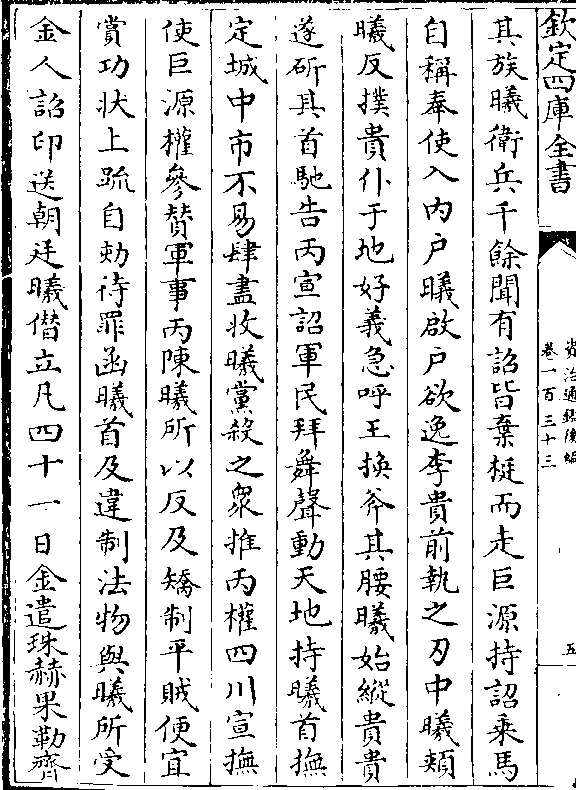 欽定四庫全書
資治通鑑後編
卷一百三十三
五
其族曦衛兵千餘聞有詔皆棄梃而走巨源持詔乘馬
自稱奉使入内户曦啟户欲逸李貴前執之刃中曦頰
曦反撲貴仆于地好義急呼王換斧其腰曦始縱貴貴
遂斫其首馳告丙宣詔軍民拜舞聲動天地持曦首撫
定城中市不易肆盡收曦黨殺之衆推丙權四川宣撫
使巨源權參贊軍事丙陳曦所以反及矯制平賊便宜
賞功狀上疏自劾待罪函曦首及違制法物與曦所受
金人詔印送朝廷曦僭立凡四十一日金遣珠赫果勒齊